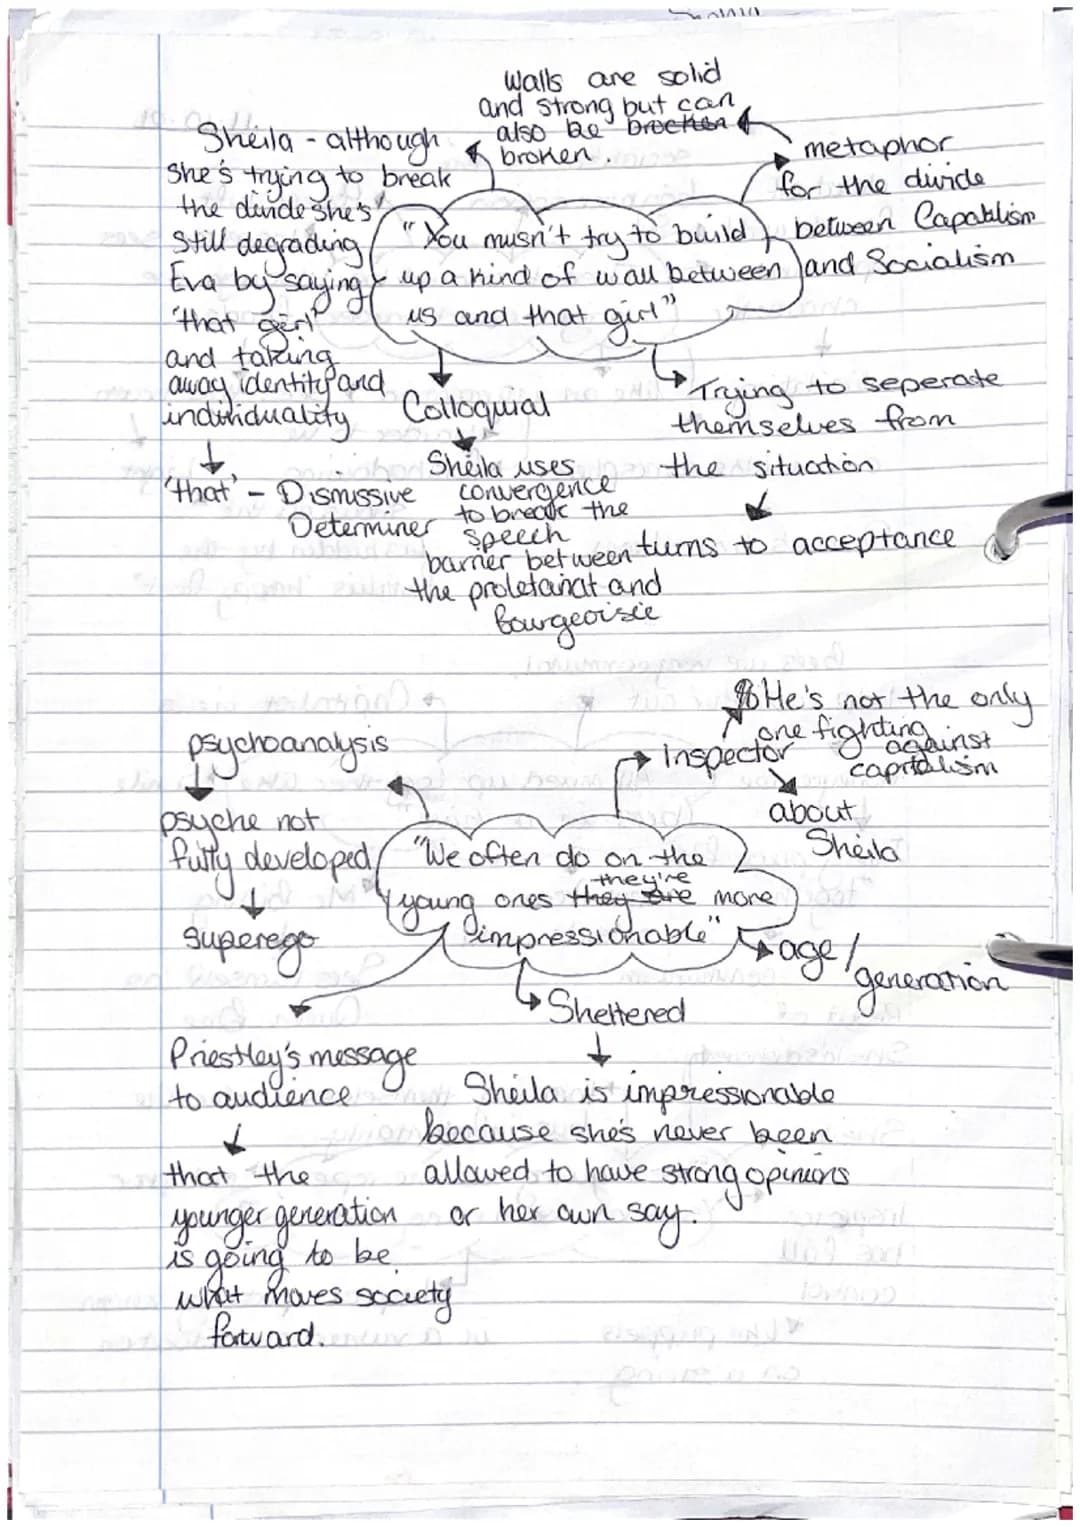 Walls are solid
and strong but can
also be brocken
broken.
Sheila - although
She's trying to break
the divide she's
Still degrading
Eva by saying
'that girl'
and taking
away identity and
individuality
'that' - Dismissive
Determiner
metaphor
for the divide
between Capatilism
and Socialism
"You musn't try to build
up a kind of wall between
us and that girl"
Colloquial
Sheila uses
convergence
to break the
speech
barrier between
the proletariat and
Bourgeoisie
Trying to seperate
themselves from
the situation
turns to acceptance
psychoanalysis
psyche not
fully developed
superego
Inspector
He's not the only
one fighting
against
capitalism
about
Sheila
"We often do on the
they're
young ones they are more
impressionable"
age/
generation
Sheltered
Sheila is impressionable
because she's never been
allowed to have strong opinions
or her own say.
Priestley's message
to audience
that the
younger generation
is going to be
what moves society
forward.